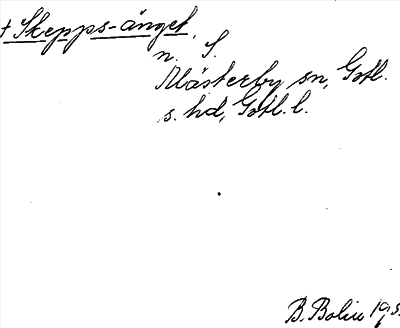 † Skepps-änget,
n. S.
Mästerby sn, Gotl.
s. hd, Gotl. l.
B. Bolin